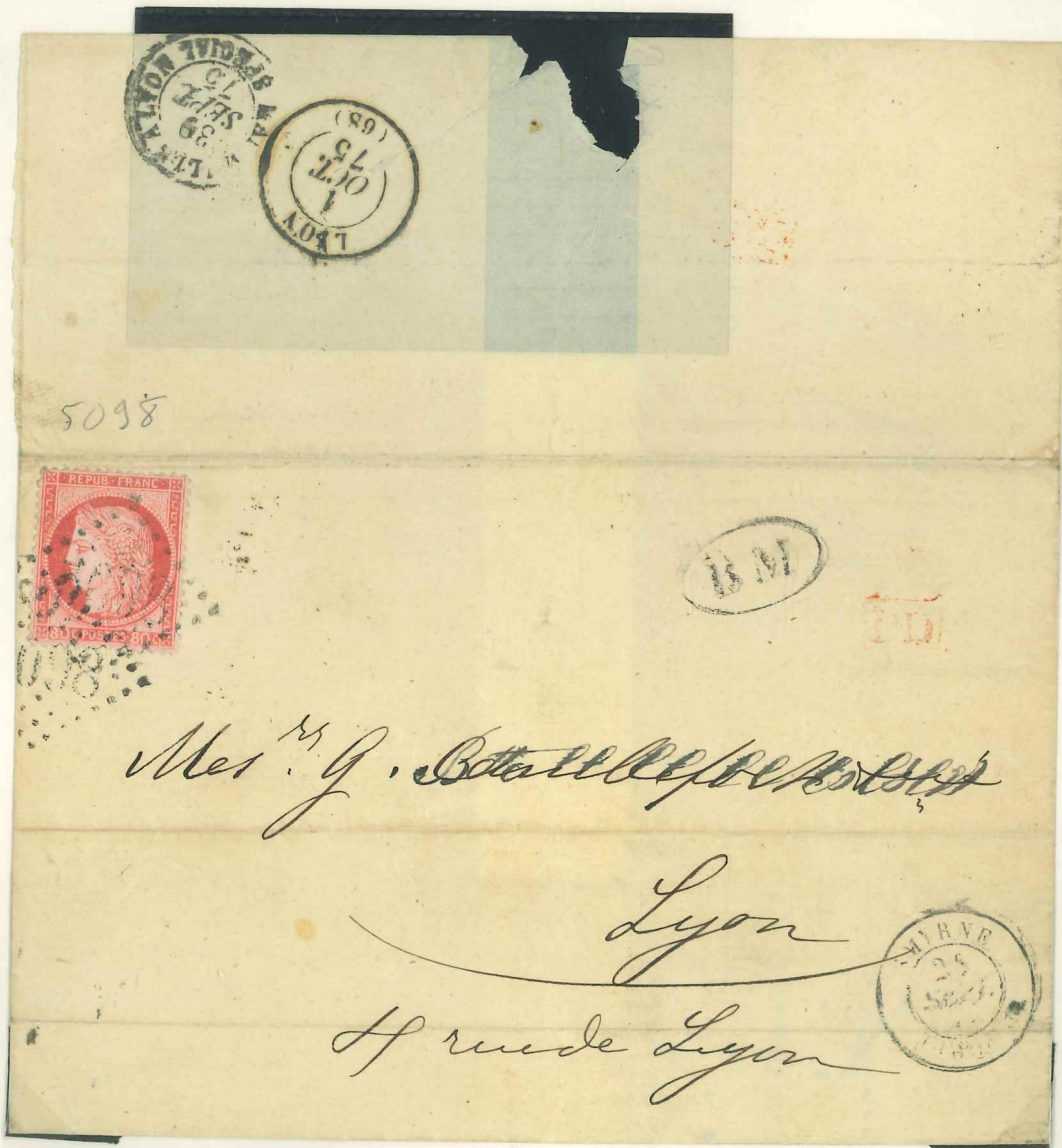 SPECIAL
39
SEPT
75
LYON
1
OCT.
75
(68)
5098
REPUB·FRANC
80 POSTES 80
098
BM
PD
Mes.rs G.
Lyon
SMYRNE
25
SEPT.
4 rue de Lyon